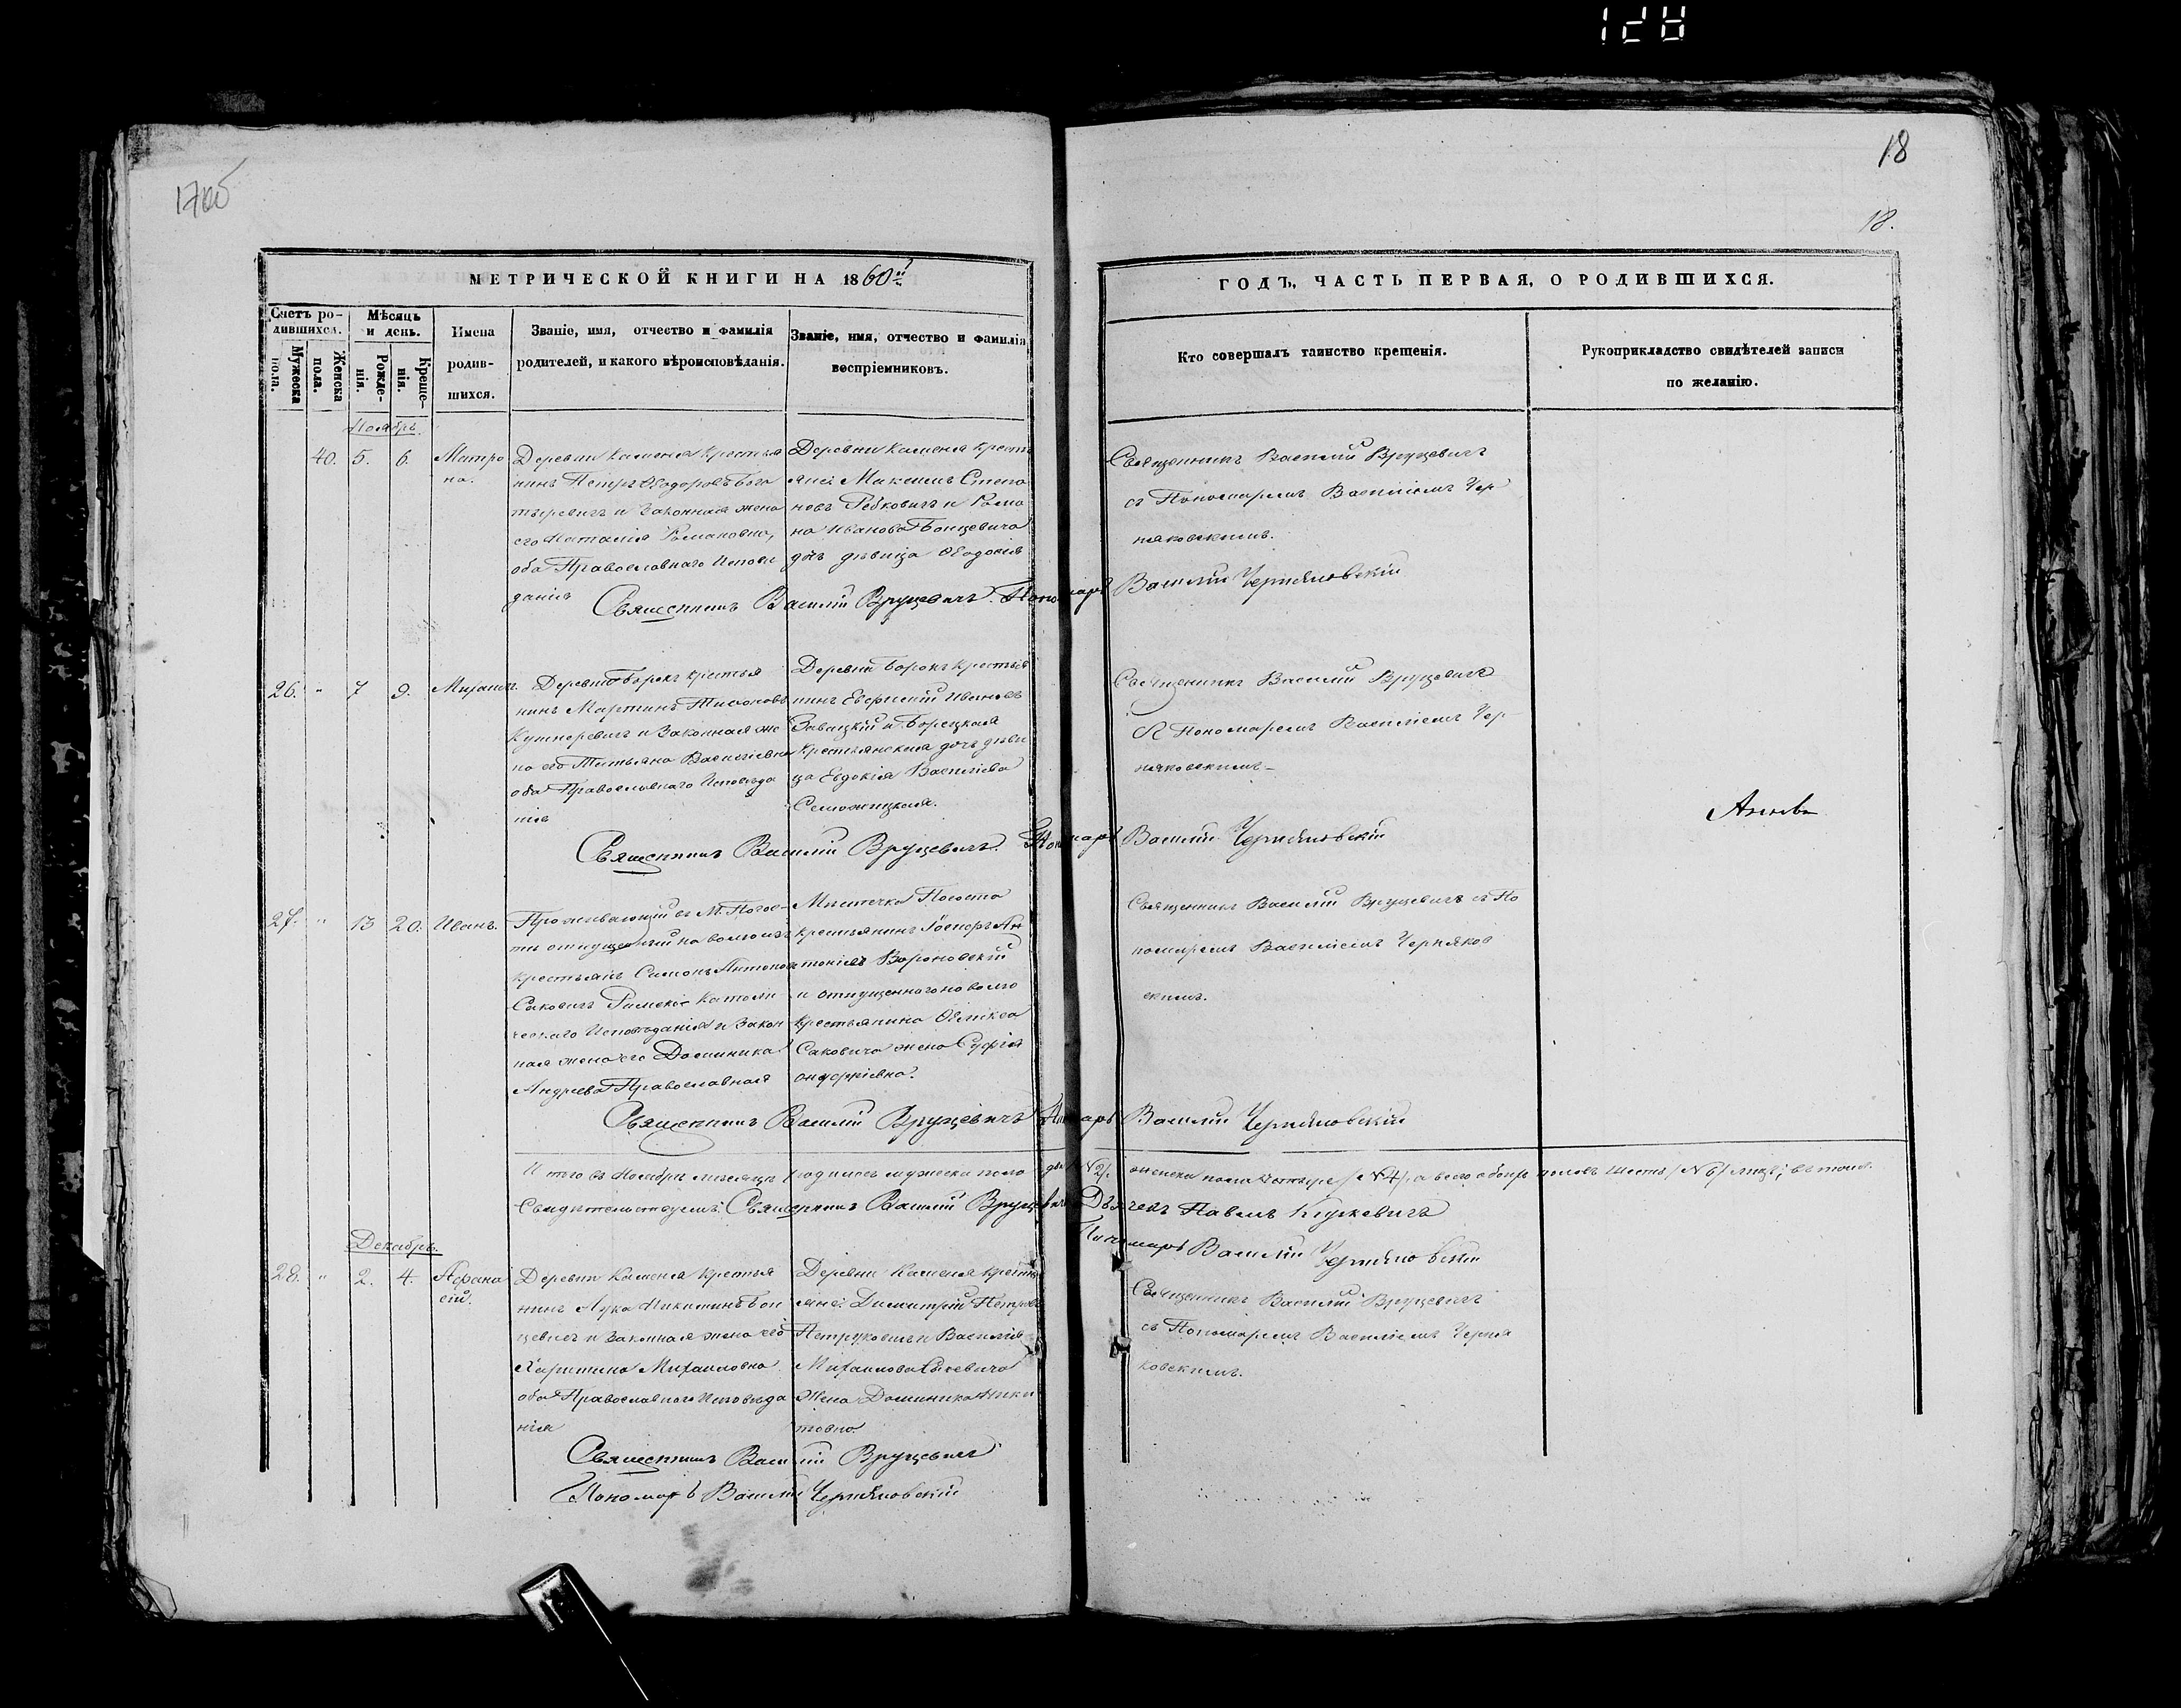 128
17об
18
18.
МЕТРИЧЕСКОЙ КНИГИ НА 1860й
ГОДЪ, ЧАСТЬ ПЕРВАЯ, О РОДИВШИХСЯ.
Счетъ родившихся.
Мужеска пола.
Женска пола.
Мѣсяцъ и день.
Рожденія.
Крещенія.
Имена родившихся.
Званіе, имя, отчество и фамилія
родителей, и какого вѣроисповѣданія.
Званіе, имя, отчество и фамилія
воспріемниковъ.
Кто совершалъ таинство крещенія.
Рукоприкладство свидѣтелей записи
по желанію.
Ноябрь.
40. 5. 6. Матрона.
Деревни Каменя крестья
нинъ Петръ Ѳеодоровъ Бога
тыревичъ и законная жена
его Наталія Романовна,
оба Православнаго Исповѣ
данія
Деревни Каменя кресть
яне: Максимъ Степа
новъ Рабковичъ и Рома
на Иванова Бонцевича
дочь дѣвица Ѳеодосія
Священникъ Василій Вруцевичъ
съ Пономаремъ Василіемъ Чер
няковскимъ.
Священникъ Василій Вруцевичъ. Пономарь Василій Черняковскій
26. " 7 9. Михаилъ.
Деревни Борокъ крестья
нинъ Мартинъ
и законная же
на его Татьяна Васильевна
оба Православнаго Исповѣда
нія
Деревни Борокъ крестья
нинъ Евфимій Ивановъ
и Борецкая
крестьянская дочь дѣви
ца Евдокія Васильева
Священникъ Василій Вруцевичъ
съ Пономаремъ Василіемъ Чер
няковскимъ
Священникъ Василій Вруцевичъ. Пономарь Василій Черняковскій
27. " 13 20. Иванъ.
Проживающій въ М. Погос
тѣ отпущенный на волю изъ
крестьянъ Симонъ Антоновъ
Саковичъ Римско Католи
ческаго Исповѣданія и Закон
ная жена его Доминика
Андреева Православная
Мѣстечка Погоста
крестьянинъ Ан
тоніевъ Вороновскій
и отпущеннаго на волю
крестьянина Ѳеликса
Саковича жена Софія
Онуфріевна.
Священникъ Василій Вруцевичъ съ По
номаремъ Василіемъ Черняков
скимъ.
Священникъ Василій Вруцевичъ Пономарь Василій Черняковскій
Итого въ Ноябрѣ мѣсяцѣ родилось мужеска пола два /№ 2/. женска пола четыре /№ 4/. а всего обоего половъ шесть /№ 6/ лицъ; въ томъ
Свидѣтельствуемъ: Священникъ Василій Вруцевичъ Дьячекъ Павелъ
Пономарь Василій Черняковскій
Декабрь.
28. " 2. 4. Аѳанасій.
Деревни Каменя крестья
нинъ Лука Никитинъ Бон
цевичъ и законная жена его
Харитина Михаиловна
оба Православнаго Исповѣда
нія
Деревни Каменя кресть
яне: Димитрій Петровъ
Петруковичъ и Василія
Михаилова
Жена Доминика Ники
товна.
Священникъ Василій Вруцевичъ
съ Пономаремъ Василіемъ Черня
ковскимъ.
Священникъ Василій Вруцевичъ
Пономарь Василій Черняковскій